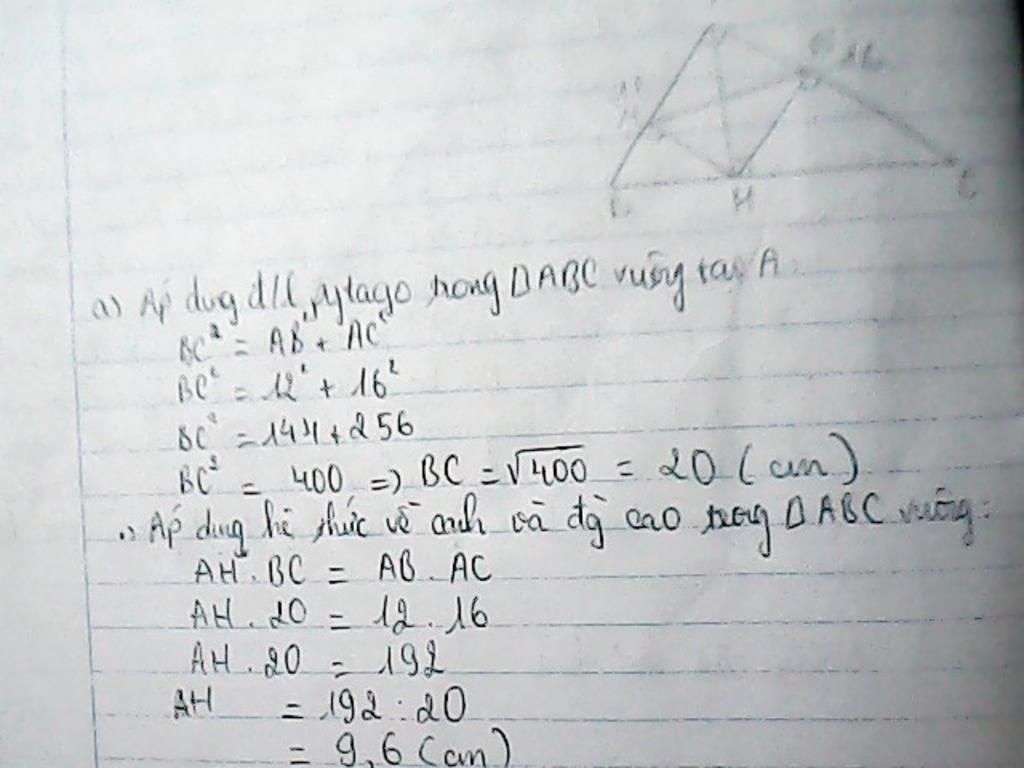 H
C
a) Áp dụng đ/l pytago trong ΔABC vuông tại A:
BC² = AB² + AC²
BC² = 12² + 16²
BC² = 144 + 256
BC² = 400 => BC = √400 = 20 (cm)
Áp dụng hệ thức về cạnh và đg cao trong ΔABC vuông:
AH . BC = AB . AC
AH . 20 = 12 . 16
AH . 20 = 192
AH = 192 : 20
= 9,6 (cm)